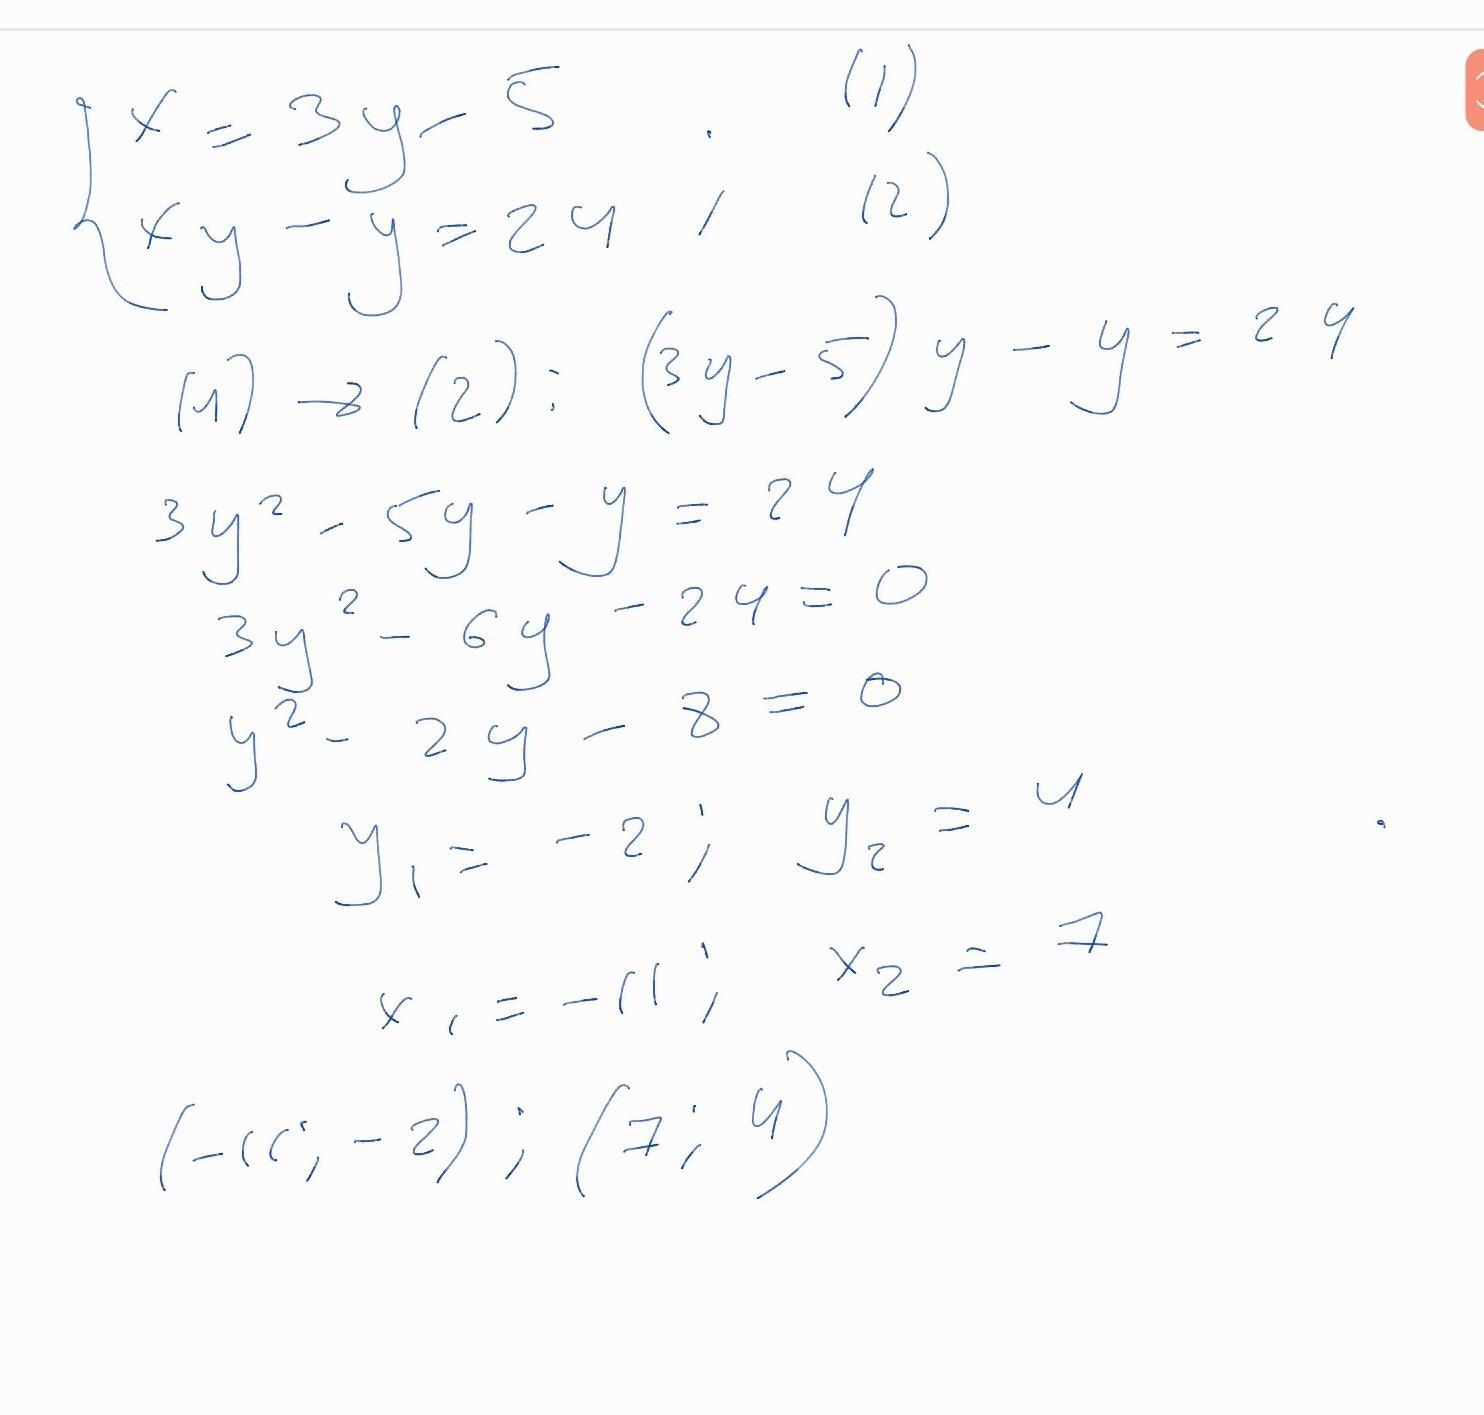 x = 3y - 5 (1)
xy - y = 24 ; (2)
(1) → (2): (3y - 5)y - y = 24
3y² - 5y - y = 24
3y² - 6y - 24 = 0
y² - 2y - 8 = 0
y₁ = -2; y₂ = 4
x₁ = -11; x₂ = 7
(-11; -2); (7; 4)